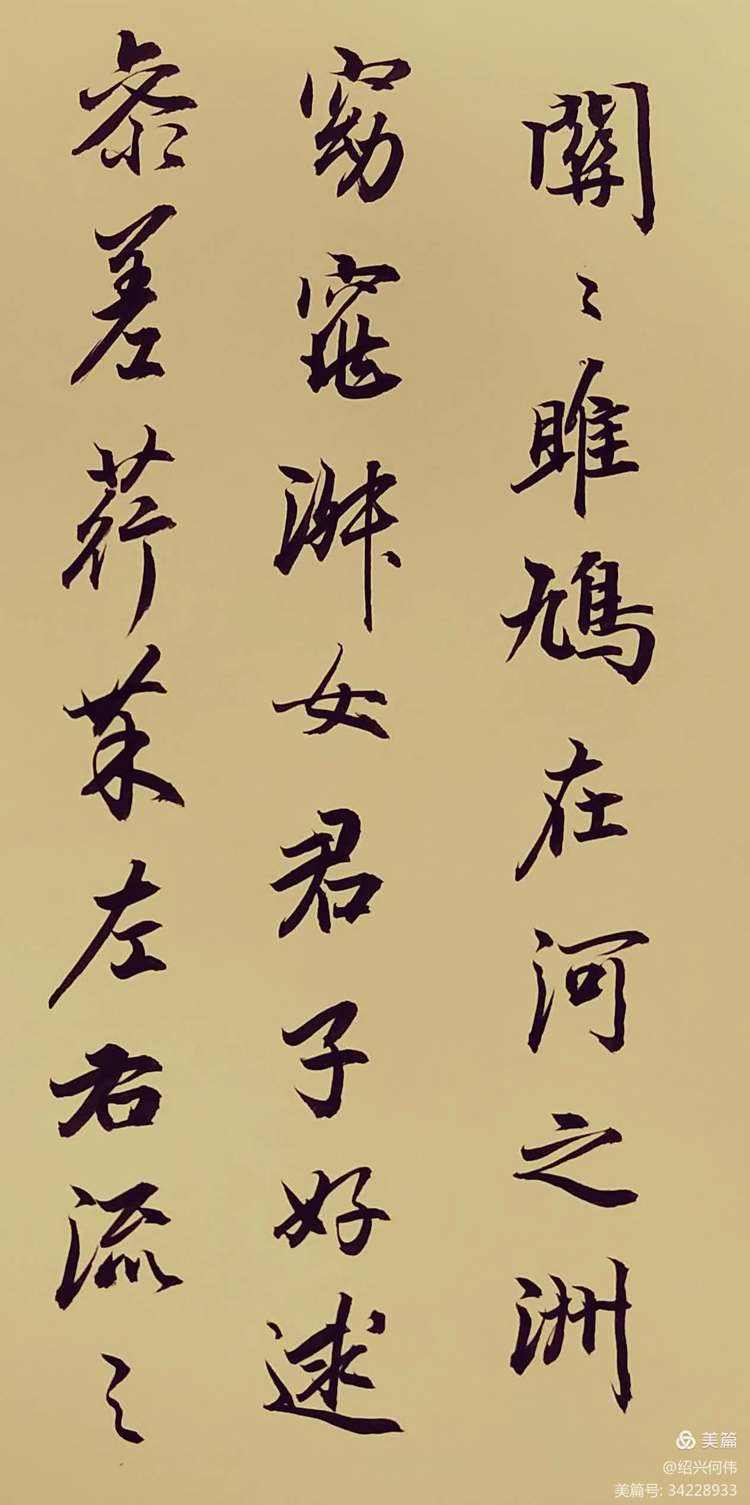 關〻雎鳩在河之洲
窈窕淑女君子好逑
參差荇菜左右流之
美篇
@绍兴何伟
美篇号: 34228933